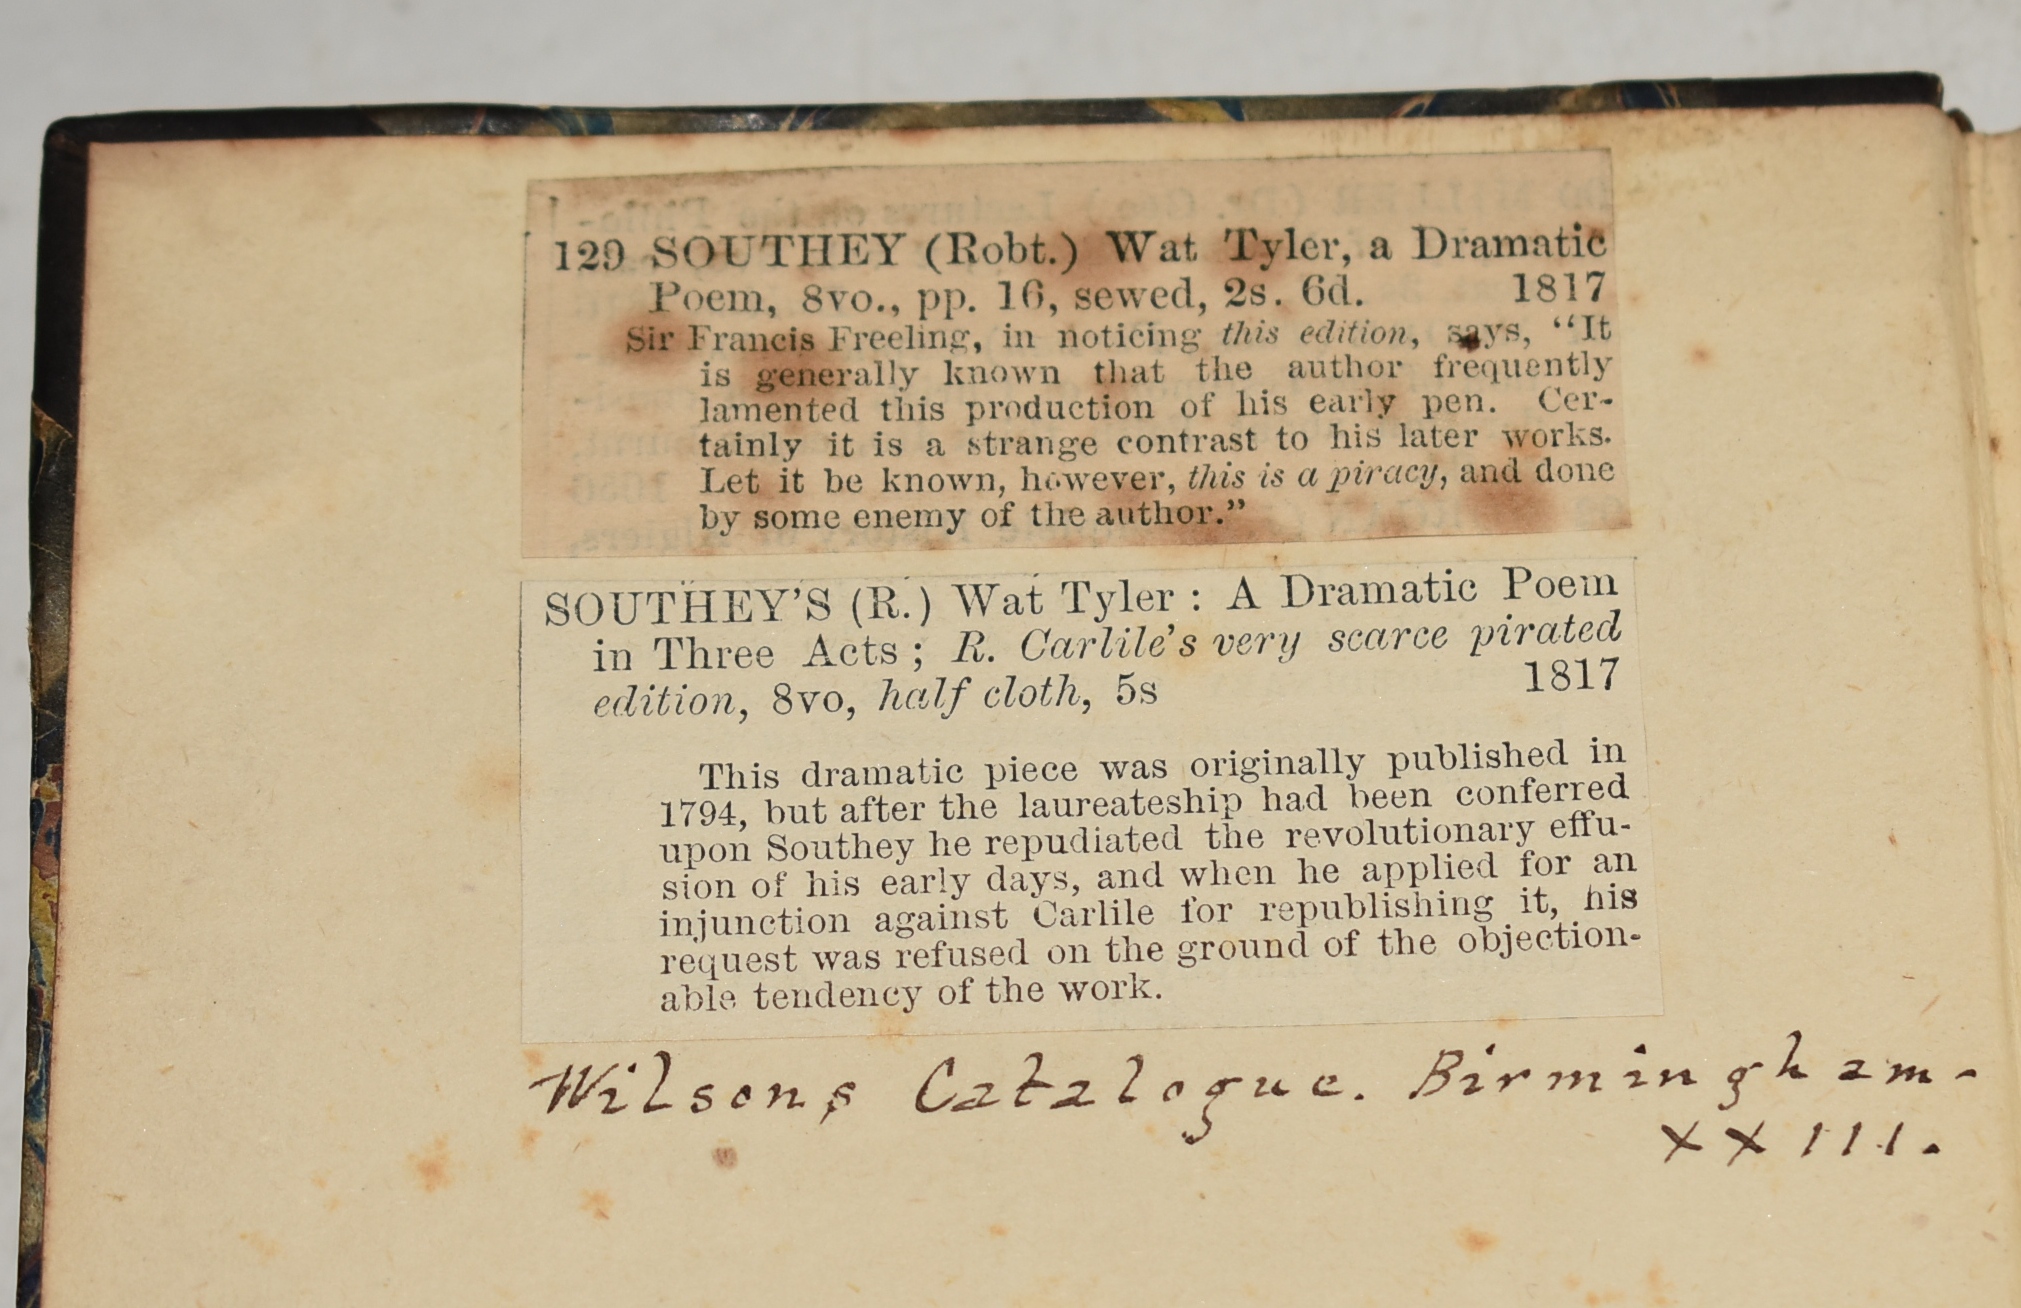 129 SOUTHEY (Robt.) Wat Tyler, a Dramatic
Poem, 8vo., pp. 16, sewed, 2s. 6d. 1817
Sir Francis Freeling, in noticing this edition, says, “It
is generally known that the author frequently
lamented this production of his early pen. Cer-
tainly it is a strange contrast to his later works.
Let it be known, however, this is a piracy, and done
by some enemy of the author.”
SOUTHEY’S (R.) Wat Tyler : A Dramatic Poem
in Three Acts ; R. Carlile’s very scarce pirated
edition, 8vo, half cloth, 5s 1817
This dramatic piece was originally published in
1794, but after the laureateship had been conferred
upon Southey he repudiated the revolutionary effu-
sion of his early days, and when he applied for an
injunction against Carlile for republishing it, his
request was refused on the ground of the objection-
able tendency of the work.
Wilsons Catalogue. Birmingham-
XXIII.